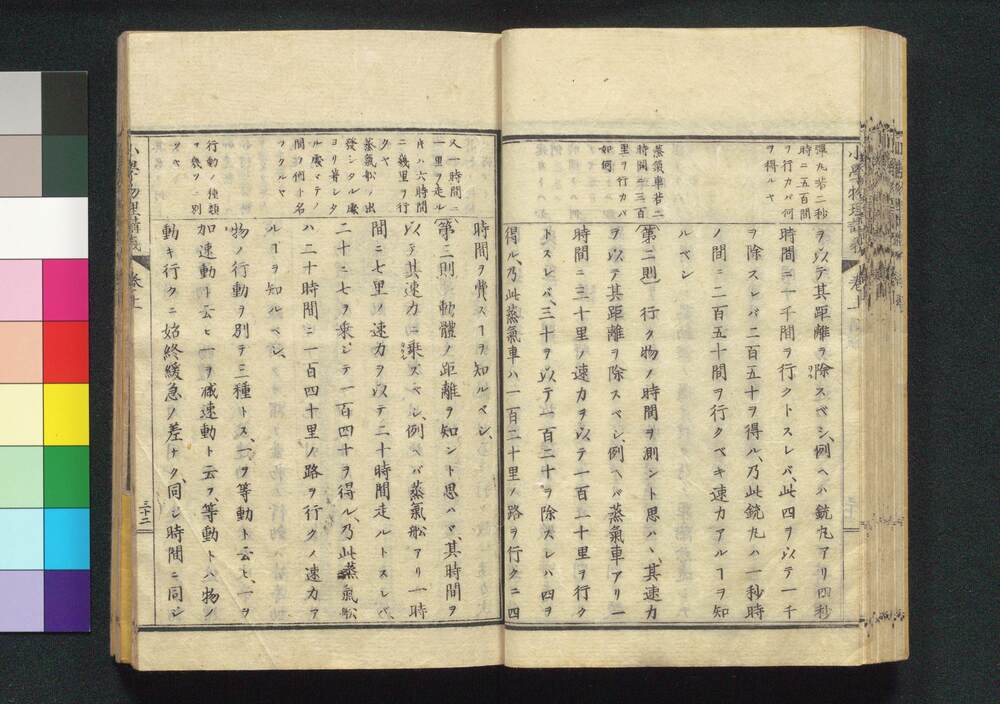 彈丸若二秒
時ニ五百間
ヲ行カバ何
ヲ得ルヤ
蒸氣車若二
時間ニ三百
里ヲ行カバ
如何
ヲ以テ其距離ヲ除スベシ、例ヘハ銃丸アリ四秒
時間ニ一千間ヲ行クトスレバ、此四ヲ以テ一千
ヲ除スレバ二百五十ヲ得ル、乃此銃丸ハ一秒時
ノ間ニ二百五十間ヲ行クベキ速力アルヿヲ知
ルベシ
(第二則)行ク物ノ時間ヲ測ント思ハヽ、其速力
ヲ以テ其距離ヲ除スベシ、例ヘバ蒸氣車アリ一
時間ニ三十里ノ速力ヲ以テ一百二十里ヲ行ク
トスレバ、三十ヲ以テ一百二十ヲ除スレハ四ヲ
得ル、乃此蒸氣車ハ一百二十里ノ路ヲ行クニ四
小學物理講義 卷上
又一時間ニ
一里ヲ走ル
片ハ六時間
ニ幾里ヲ行
クヤ
蒸氣舩ノ出
發シタル處
ヨリ着シタ
ル處マテノ
間ヲ何ト名
ツクルヤ
行動ノ種類
ヲ幾ツニ別
ツヤ
時間ヲ費スヿヲ知ルベシ、
(第三則)動體ノ距離ヲ知ント思ハヾ、其時間ヲ
以テ其速力ニ乗スベシ、例ヘバ蒸氣舩アリ一時
間ニ七里ノ速力ヲ以テ二十時間走ルトスレバ、
二十ニ七ヲ乗シテ一百四十ヲ得ル、乃此蒸氣舩
ハ二十時間ニ一百四十里ノ路ヲ行クノ速力ア
ルヿヲ知ルベシ、
物ノ行動ヲ別テ三種トス、一ヲ等動ト云ヒ、一ヲ
加速動ト云ヒ一ヲ減速動ト云フ、等動トハ物ノ
動キ行クニ始終緩急ノ差ナク、同シ時間ニ同シ
小學物理講義 卷上
三十二